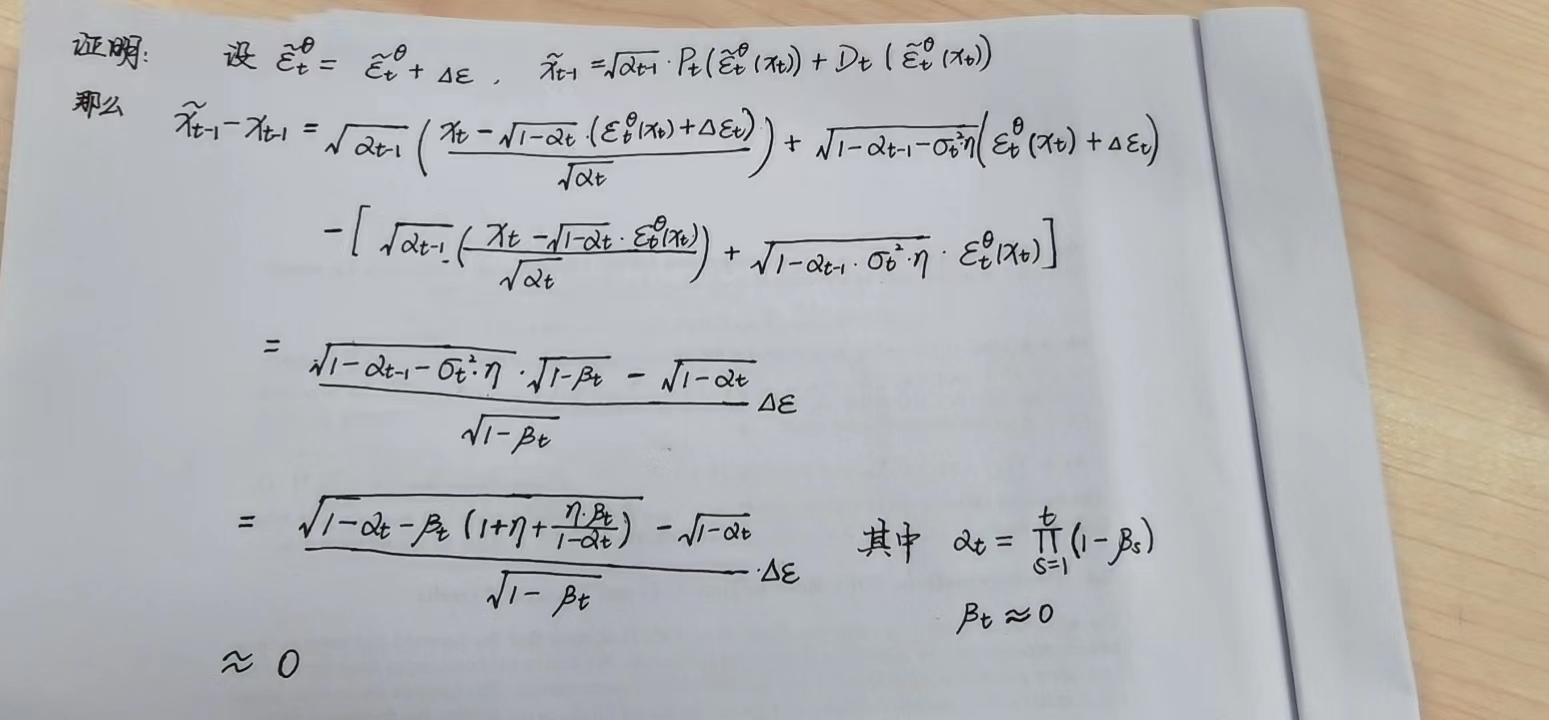 证明: 设 ε̃_t^θ = ε̃_t^θ + Δε , x̃_{t-1} = √(α_{t-1}) · P_t(ε̃_t^θ(x_t)) + D_t(ε̃_t^θ(x_t))
那么 x̃_{t-1} - x_{t-1} = √(α_{t-1}) ( (x_t - √(1-α_t) · (ε_t^θ(x_t) + Δε_t)) / √(α_t) ) + √(1-α_{t-1}-σ_t²η) (ε_t^θ(x_t) + Δε_t)
- [ √(α_{t-1}) · ( (x_t - √(1-α_t) · ε_t^θ(x_t)) / √(α_t) ) + √(1-α_{t-1}·σ_t²·η) · ε_t^θ(x_t) ]
= (√(1-α_{t-1}-σ_t²·η) · √(1-β_t) - √(1-α_t)) / √(1-β_t) Δε
= (√(1-α_t-β_t (1+η+ (η·β_t)/(1-α_t))) - √(1-α_t)) / √(1-β_t) · Δε 其中 α_t = ∏_{s=1}^{t} (1-β_s)
β_t ≈ 0
≈ 0